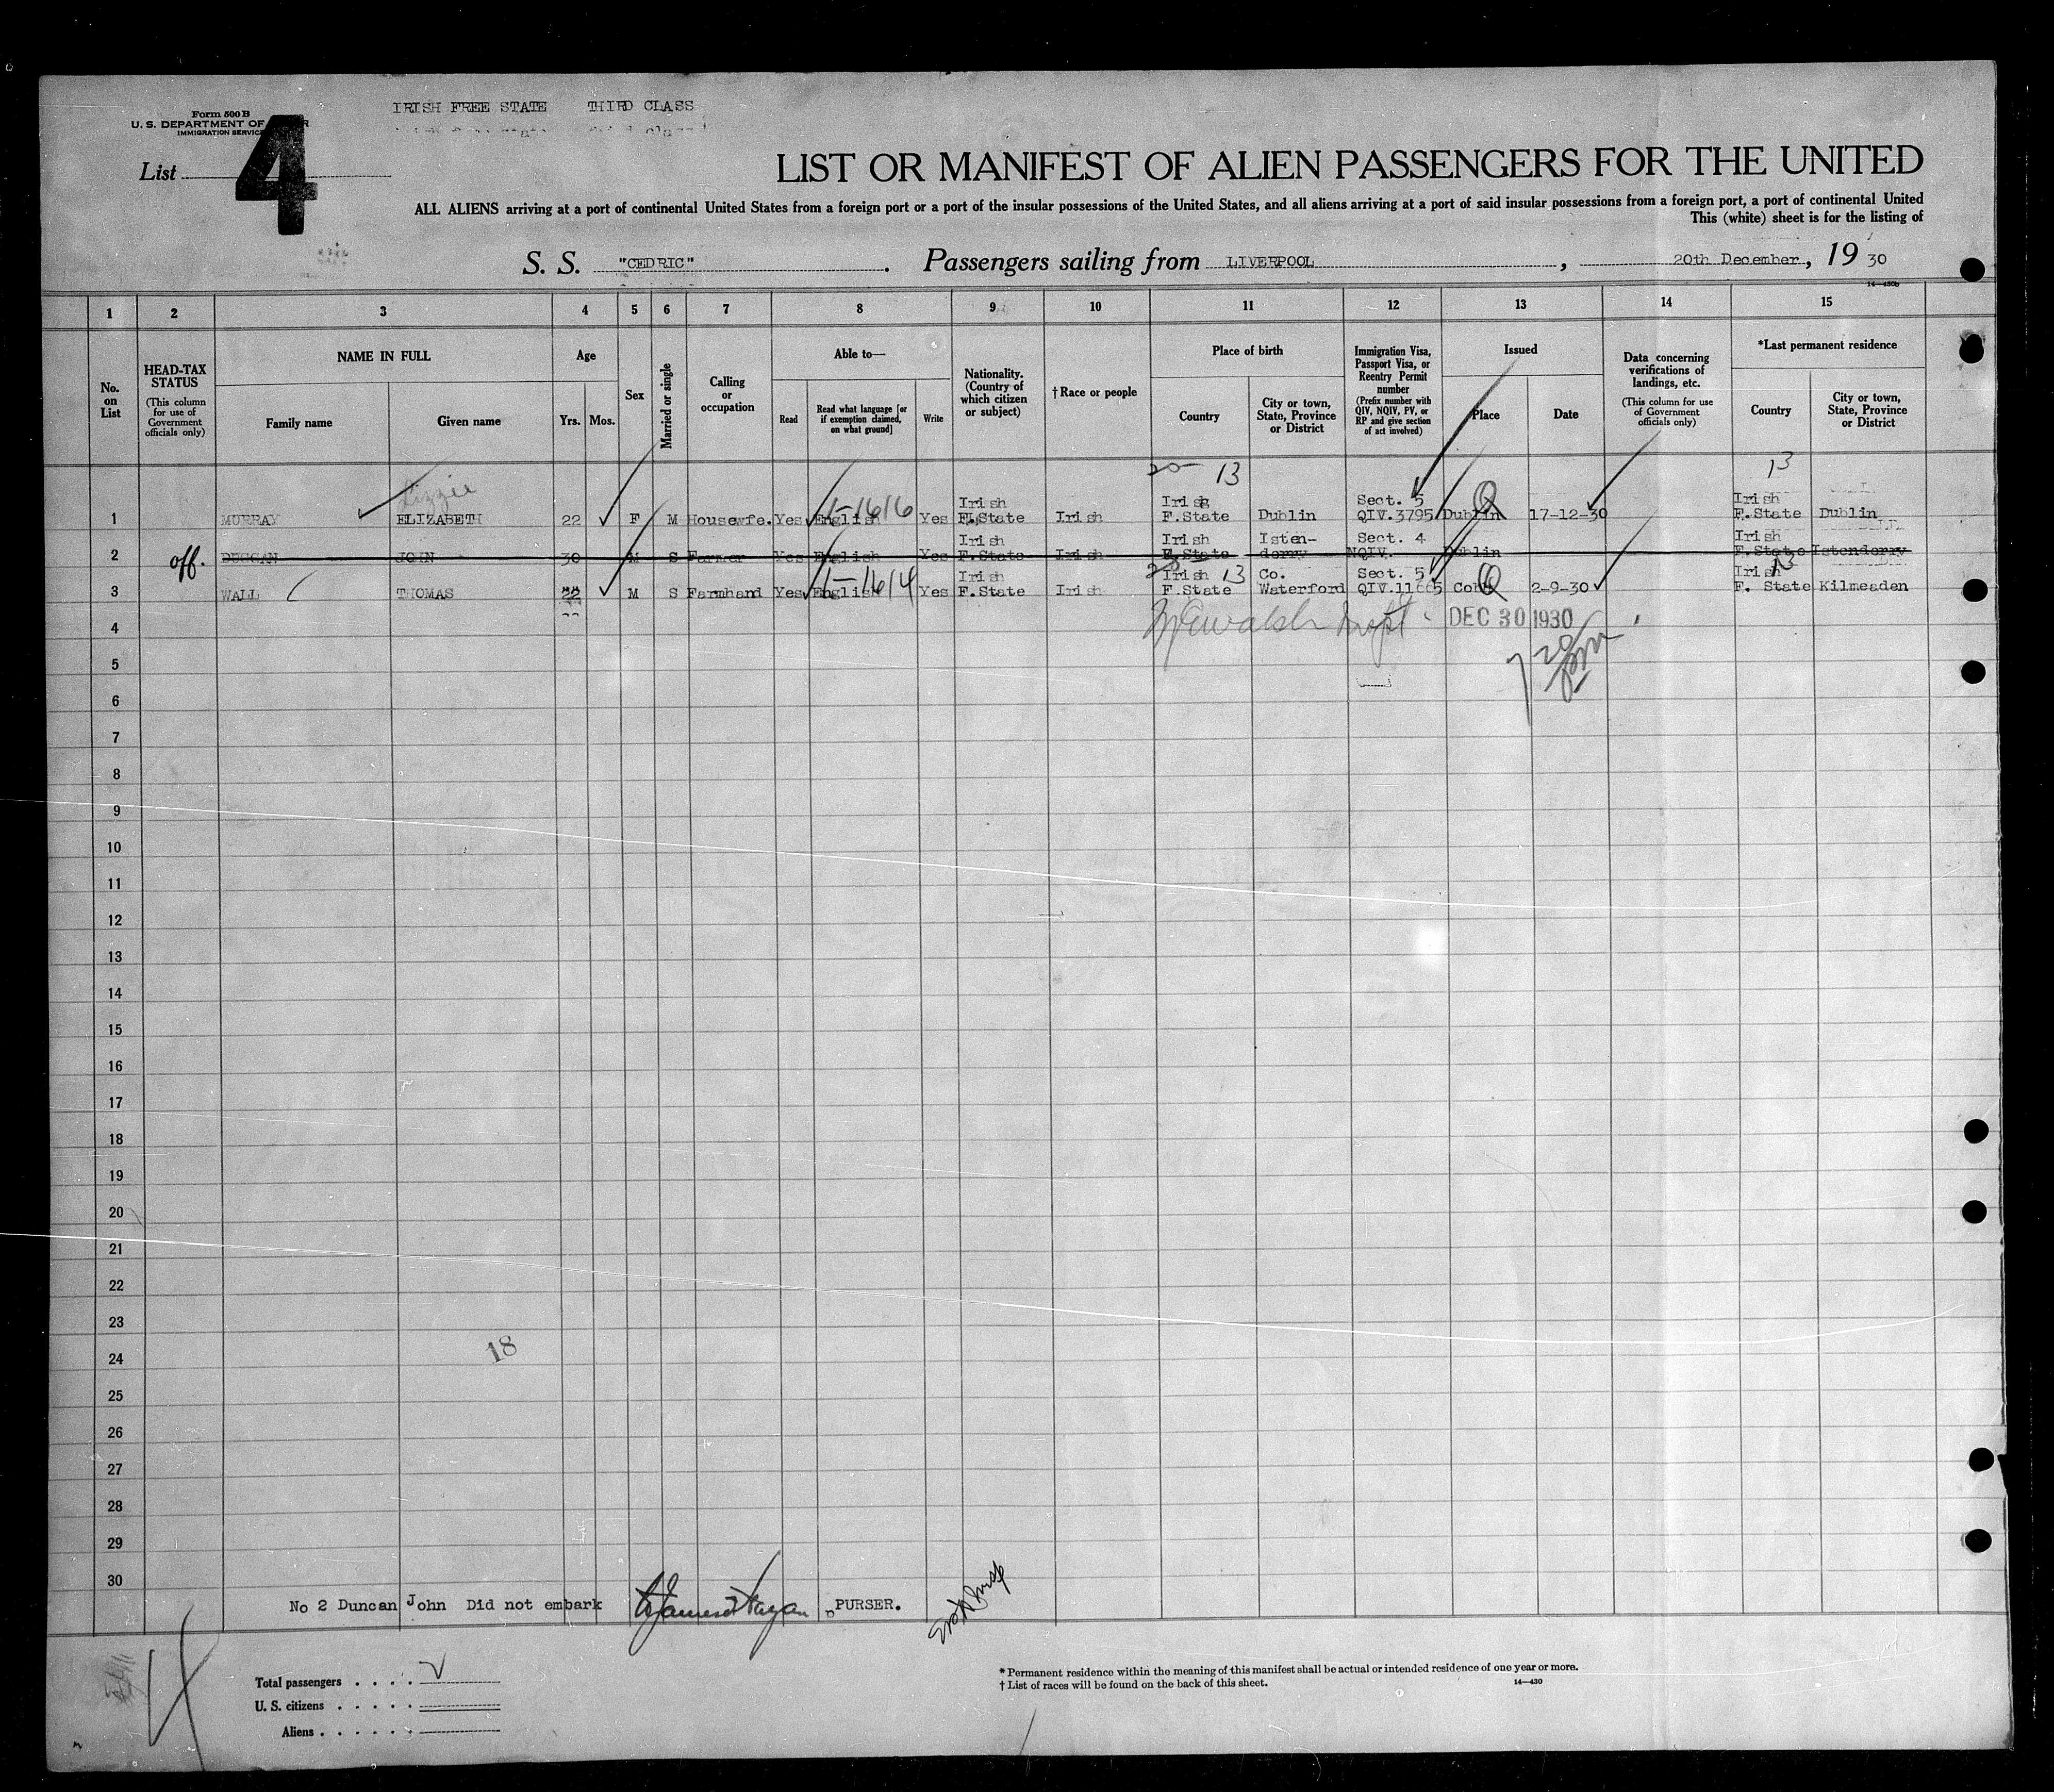 Form 500 B
U. S. DEPARTMENT OF
IMMIGRATION SERVICE
IRISH FREE STATE THIRD CLASS
List 4
LIST OR MANIFEST OF ALIEN PASSENGERS FOR THE UNITED
ALL ALIENS arriving at a port of continental United States from a foreign port or a port of the insular possessions of the United States, and all aliens arriving at a port of said insular possessions from a foreign port, a port of continental United
This (white) sheet is for the listing of
S. S. "CEDRIC". Passengers sailing from LIVERPOOL, 20th December, 19 30
14—430b
1 2 3 4 5 6 7 8 9 10 11 12 13 14 15
No. on List
HEAD-TAX STATUS
(This column for use of Government officials only)
NAME IN FULL
Family name
Given name
Age
Yrs.
Mos.
Sex
Married or single
Calling or occupation
Able to—
Read
Read what language [or if exemption claimed, on what ground]
Write
Nationality. (Country of which citizen or subject)
† Race or people
Place of birth
Country
City or town, State, Province or District
Immigration Visa, Passport Visa, or Reentry Permit number
(Prefix number with QIV, NQIV, PV, or RP and give section of act involved)
Issued
Place
Date
Data concerning verifications of landings, etc.
(This column for use of Government officials only)
*Last permanent residence
Country
City or town, State, Province or District
20— 13 13
Lizzie
1 MURRAY ELIZABETH 22 F M Housewfe. Yes English 1-1616 Yes Irish F.State Irish Irish F.State Dublin Sect. 5 QIV.3795 Dublin 17-12-30 Irish F.State Dublin
off. 2 DUGGAN JOHN 30 M S Farmer Yes English Yes Irish F.State Irish Irish F.State Istenderry Sect. 4 NQIV. Dublin Irish F.State Istenderry
3 WALL THOMAS 22 M S Farmhand Yes English 1-1614 Yes Irish F.State Irish Irish 13 F.State Co. Waterford Sect. 5 Cobh 2-9-30 Irish F. State Kilmeaden
4 DEC 30 1930
5
6
7
8
9
10
11
12
13
14
15
16
17
18
19
20
21
22
23
24 18
25
26
27
28
29
30
No 2 Duncan John Did not embark PURSER.
Total passengers
U. S. citizens
Aliens
* Permanent residence within the meaning of this manifest shall be actual or intended residence of one year or more.
† List of races will be found on the back of this sheet.
14—430